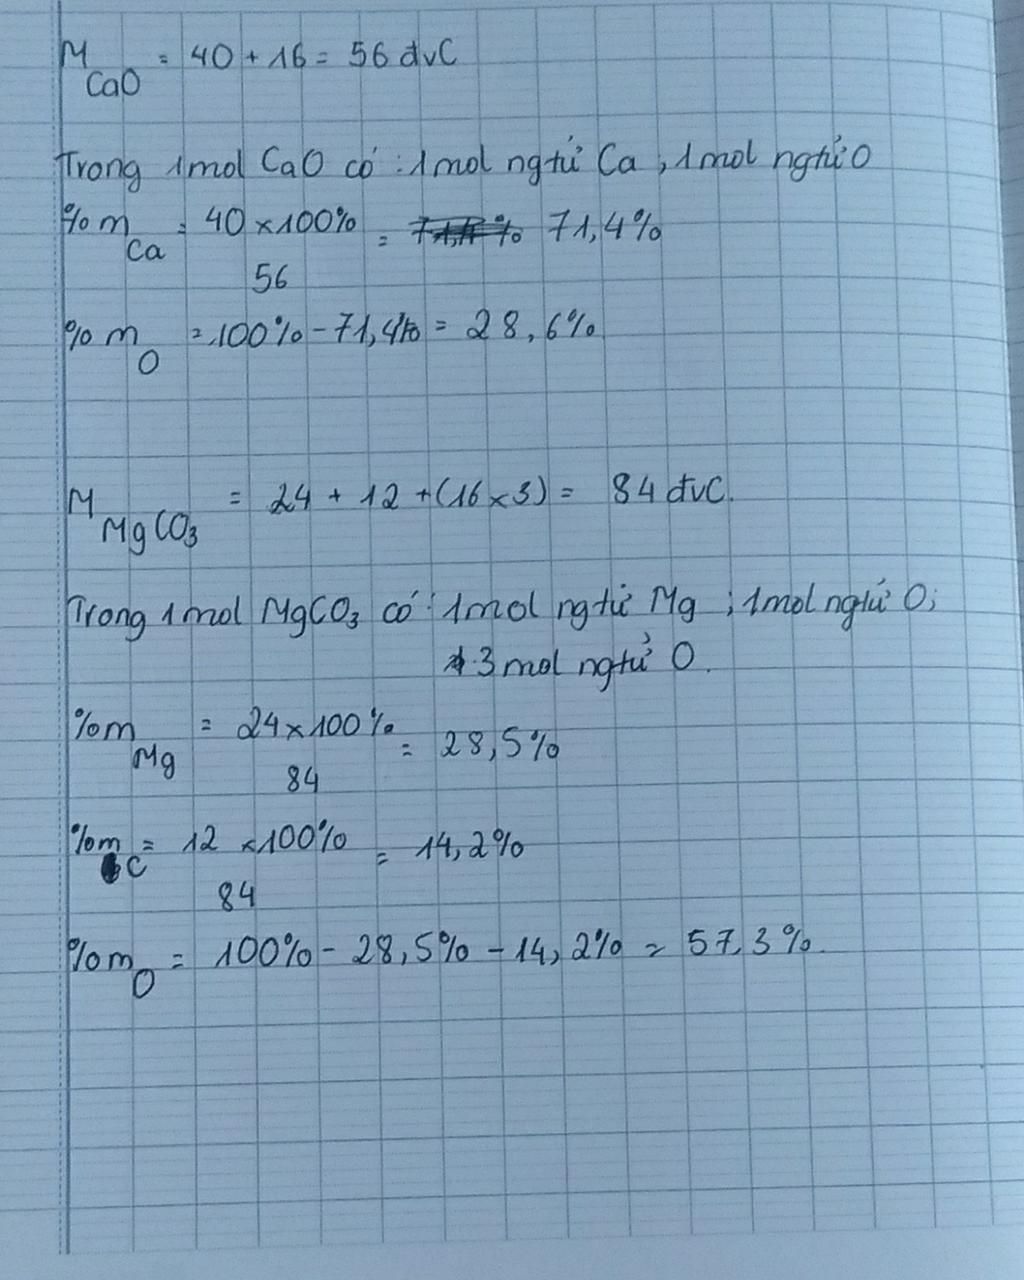 M CaO = 40 + 16 = 56 đvC
Trong 1mol CaO có : 1mol ngtử Ca , 1mol ngtử O
%m Ca = 40 x 100% / 56 = 71,4%
%m O = 100% - 71,4% = 28,6%
M MgCO3 = 24 + 12 + (16 x 3) = 84 đvC.
Trong 1mol MgCO3 có : 1mol ngtử Mg ; 1mol ngtử O;
3 mol ngtử O.
%m Mg = 24 x 100% / 84 = 28,5%
%m C = 12 x 100% / 84 = 14,2%
%m O = 100% - 28,5% - 14,2% = 57,3%.